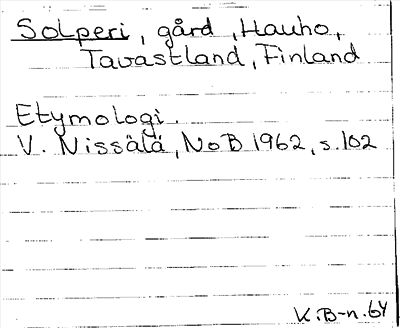 Solperi, gård, Hauho,
Tavastland, Finland
Etymologi.
V. Nissälä, NoB 1962, s. 102
K.B-n. 64